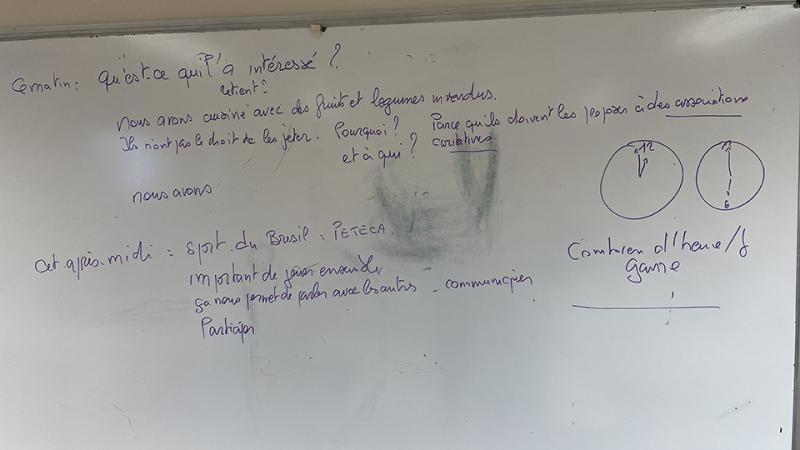 Ce matin : qu'est-ce qui t'a intéressé ?
retient ?
nous avons cuisiné avec des fruits et légumes invendus.
Ils n'ont pas le droit de les jeter. Pourquoi ? Parce qu'ils doivent les proposer à des associations
et à qui ? caritatives
nous avons
12
6
Cet après-midi : Sport du Bresil : PETECA.
important de jouer ensemble
ça nous permet de parler avec les autres - communiquer
Participer
Combien d'heure/j